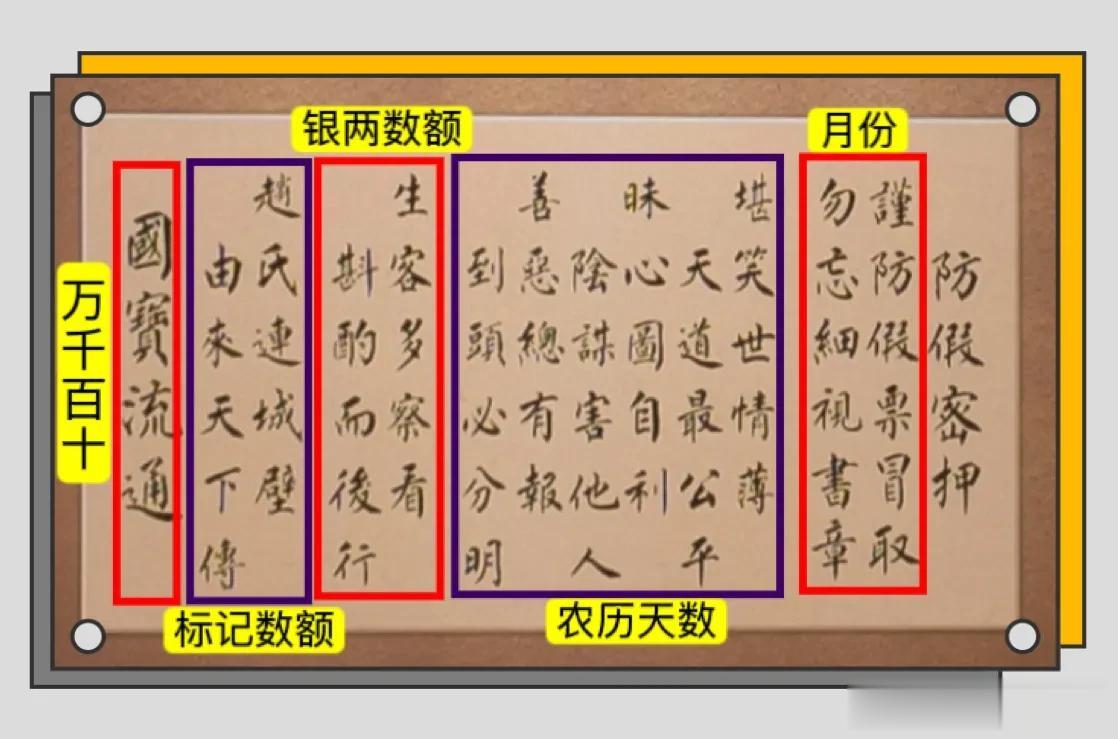 防假密押
月份
謹防假票冒取
勿忘細視書章
农历天数
堪笑世情薄
天道最公平
昧心圖自利
陰謀害他人
善惡總有報
到頭必分明
银两数额
生客多察看
斟酌而後行
标记数额
趙氏連城壁
由來天下傳
國寶流通
万千百十